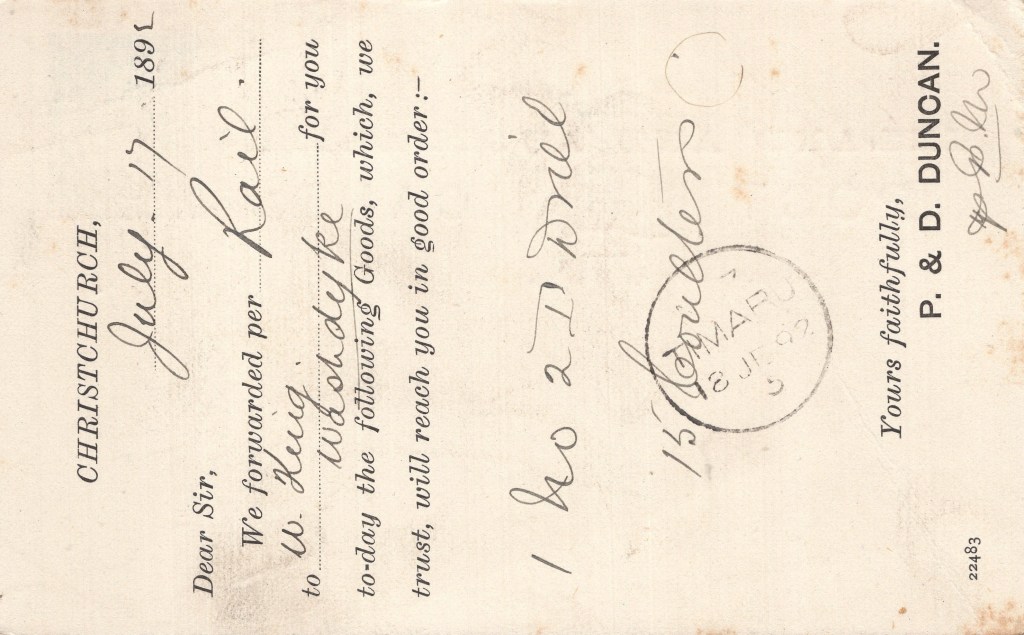 CHRISTCHURCH,
July 17 189
Dear Sir,
We forwarded per Rail
to W. King Washdyke for you
to-day the following Goods, which, we
trust, will reach you in good order:—
1 No 2 D Drill
15 Coulters
TIMARU
8 JL 92
Yours faithfully,
P. & D. DUNCAN.
22483